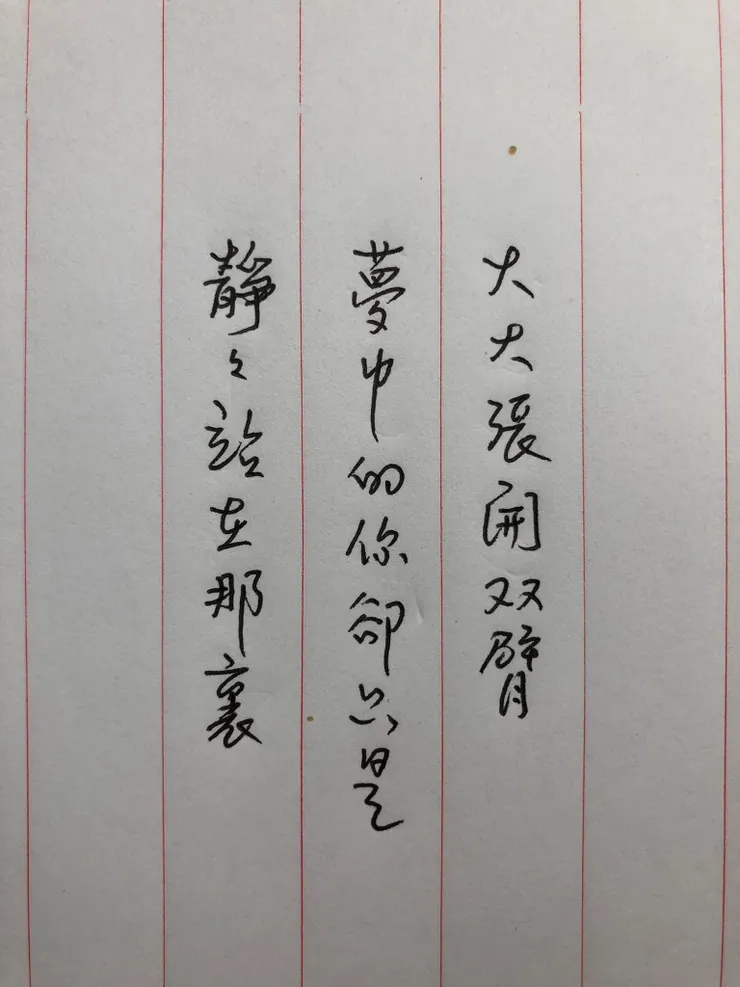 大大張開双臂
夢中的你卻只是
靜々站在那裏